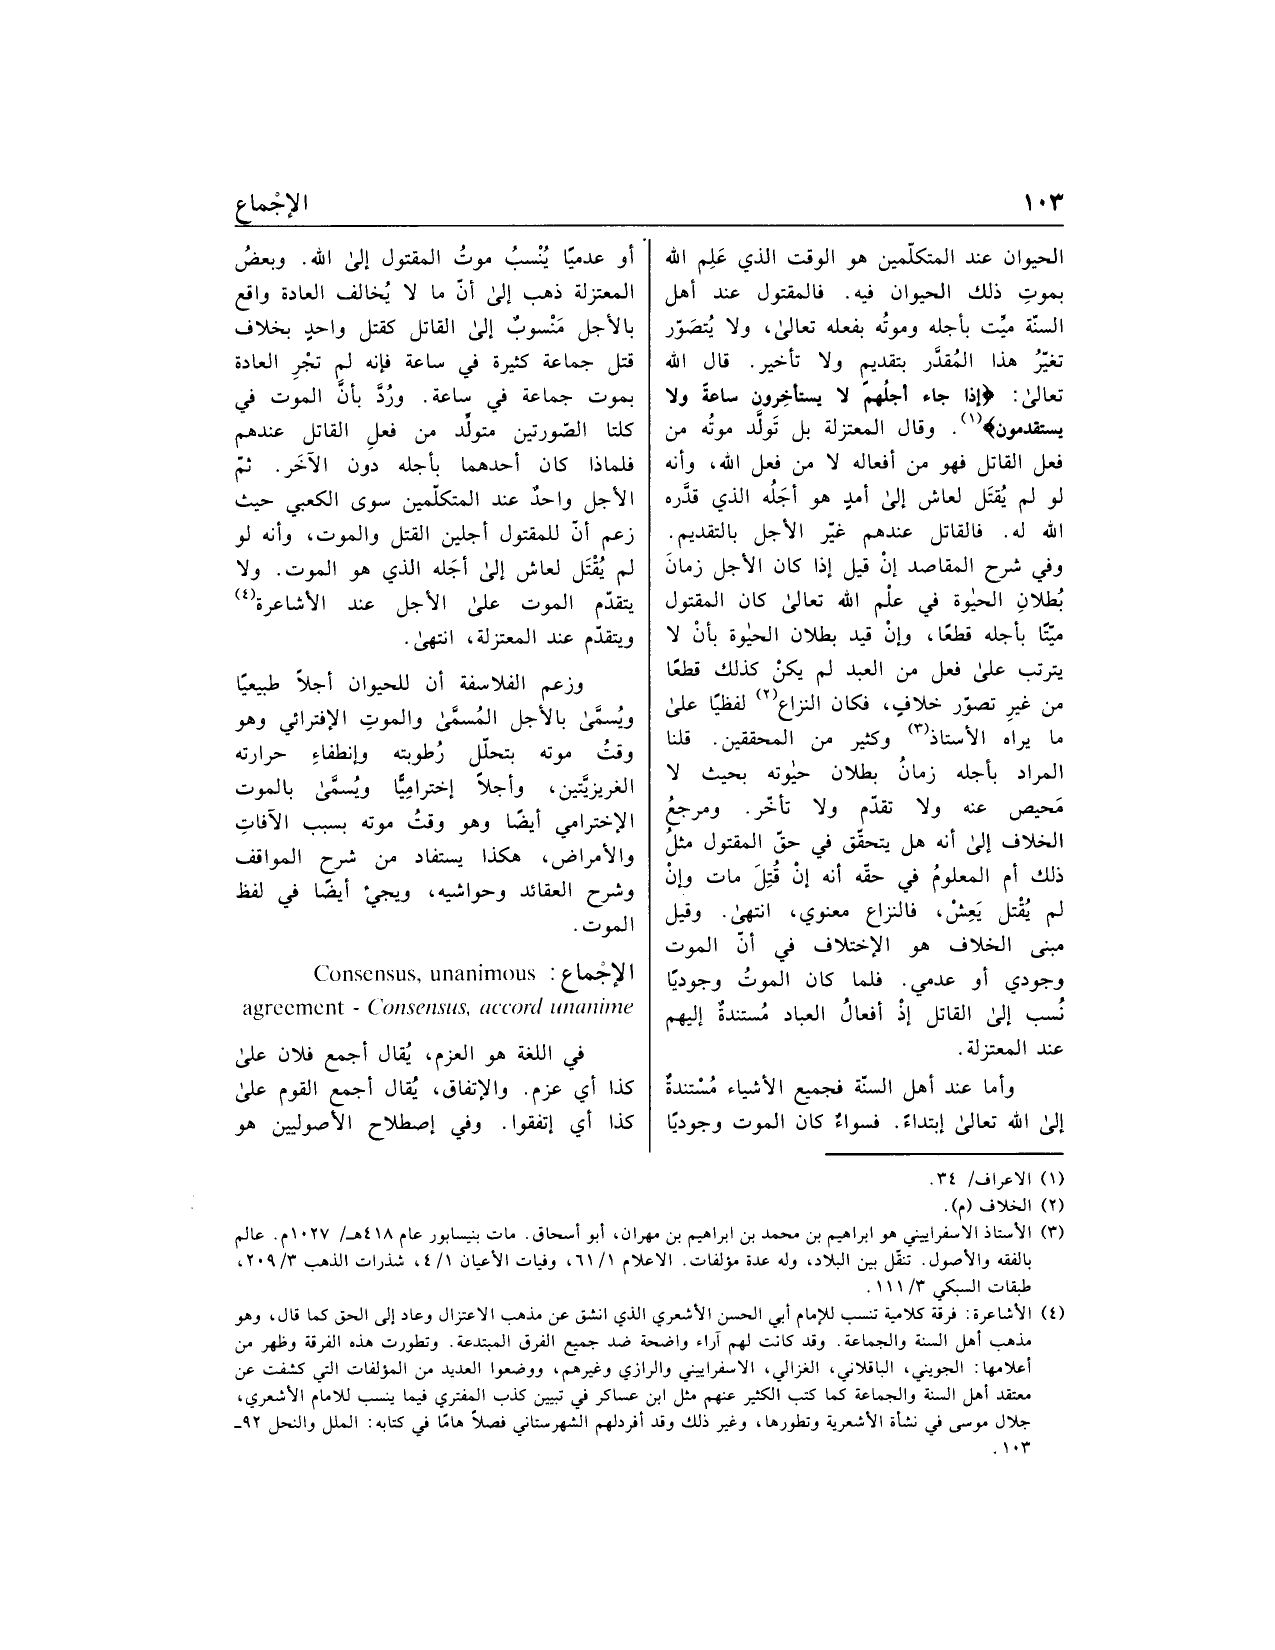 ١٠٣
الإجْماع
الحيوان عند المتكلّمين هو الوقت الذي عَلِم الله
بموتِ ذلك الحيوان فيه. فالمقتول عند أهل
السنّة ميِّت بأجله وموتُه بفعله تعالىٰ، ولا يُتصَوّر
تغيّرُ هذا المُقدَّر بتقديم ولا تأخير. قال الله
تعالىٰ: ﴿إذا جاء أجلُهمْ لا يستأخِرون ساعةً ولا
يستقدمون﴾(١). وقال المعتزلة بل تَولَّد موتُه من
فعل القاتل فهو من أفعاله لا من فعل الله، وأنه
لو لم يُقتَل لعاش إلىٰ أمدٍ هو أجَلُه الذي قدَّره
الله له. فالقاتل عندهم غيّر الأجل بالتقديم.
وفي شرح المقاصد إنْ قيل إذا كان الأجل زمانَ
بُطلانِ الحيٰوة في علْم الله تعالىٰ كان المقتول
ميّتًا بأجله قطعًا، وإنْ قيد بطلان الحيٰوة بأنْ لا
يترتب علىٰ فعل من العبد لم يكنْ كذلك قطعًا
من غيرِ تصوّر خلافٍ، فكان النزاع(٢) لفظيًا علىٰ
ما يراه الأستاذ(٣) وكثير من المحققين. قلنا
المراد بأجله زمانُ بطلان حيٰوته بحيث لا
مَحيص عنه ولا تقدّم ولا تأخّر. ومرجعُ
الخلاف إلىٰ أنه هل يتحقّق في حقّ المقتول مثلُ
ذلك أم المعلومُ في حقّه أنه إنْ قُتِلَ مات وإنْ
لم يُقْتل يَعِشْ، فالنزاع معنوي، انتهىٰ. وقيل
مبنى الخلاف هو الإختلاف في أنّ الموت
وجودي أو عدمي. فلما كان الموتُ وجوديًا
نُسب إلىٰ القاتل إذْ أفعالُ العباد مُستندةٌ إليهم
عند المعتزلة.
وأما عند أهل السنّة فجميع الأشياء مُسْتندةٌ
إلىٰ الله تعالىٰ إبتداءً. فسواءٌ كان الموت وجوديًا
أو عدميًا يُنْسبُ موتُ المقتول إلىٰ الله. وبعضُ
المعتزلة ذهب إلىٰ أنّ ما لا يُخالف العادة واقع
بالأجل مَنْسوبٌ إلىٰ القاتل كقتل واحدٍ بخلاف
قتل جماعة كثيرة في ساعة فإنه لم تجْرِ العادة
بموت جماعة في ساعة. ورُدَّ بأنَّ الموت في
كلتا الصّورتين متولِّد من فعلِ القاتل عندهم
فلماذا كان أحدهما بأجله دون الآخَر. ثمّ
الأجل واحدٌ عند المتكلّمين سوى الكعبي حيث
زعم أنّ للمقتول أجلين القتل والموت، وأنه لو
لم يُقْتَل لعاش إلىٰ أجَله الذي هو الموت. ولا
يتقدّم الموت علىٰ الأجل عند الأشاعرة(٤)
ويتقدّم عند المعتزلة، انتهىٰ.
وزعم الفلاسفة أن للحيوان أجلاً طبيعيًا
ويُسمَّىٰ بالأجل المُسمَّىٰ والموتِ الإفترائي وهو
وقتُ موته بتحلّل رُطوبته وإنطفاءِ حرارته
الغريزيَّتين، وأجلاً إختراميًّا ويُسمَّىٰ بالموت
الإخترامي أيضًا وهو وقتُ موته بسبب الآفاتِ
والأمراض، هكذا يستفاد من شرح المواقف
وشرح العقائد وحواشيه، ويجيْ أيضًا في لفظ
الموت.
الإجْماع: Consensus, unanimous
agreement - Consensus, accord unanime
في اللغة هو العزم، يُقال أجمع فلان علىٰ
كذا أي عزم. والإتفاق، يُقال أجمع القوم علىٰ
كذا أي إتفقوا. وفي إصطلاح الأصوليين هو
(١) الاعراف/ ٣٤.
(٢) الخلاف (م).
(٣) الأستاذ الاسفراييني هو ابراهيم بن محمد بن ابراهيم بن مهران، أبو أسحاق. مات بنيسابور عام ٤١٨هـ/ ١٠٢٧م. عالم
بالفقه والأصول. تنقّل بين البلاد، وله عدة مؤلفات. الاعلام ٦١/١، وفيات الأعيان ٤/١، شذرات الذهب ٢٠٩/٣،
طبقات السبكي ١١١/٣.
(٤) الأشاعرة: فرقة كلامية تنسب للإمام أبي الحسن الأشعري الذي انشق عن مذهب الاعتزال وعاد إلى الحق كما قال، وهو
مذهب أهل السنة والجماعة. وقد كانت لهم آراء واضحة ضد جميع الفرق المبتدعة. وتطورت هذه الفرقة وظهر من
أعلامها: الجويني، الباقلاني، الغزالي، الاسفراييني والرازي وغيرهم، ووضعوا العديد من المؤلفات التي كشفت عن
معتقد أهل السنة والجماعة كما كتب الكثير عنهم مثل ابن عساكر في تبيين كذب المفتري فيما ينسب للامام الأشعري،
جلال موسى في نشأة الأشعرية وتطورها، وغير ذلك وقد أفردلهم الشهرستاني فصلاً هامًا في كتابه: الملل والنحل ٩٢ـ
١٠٣.